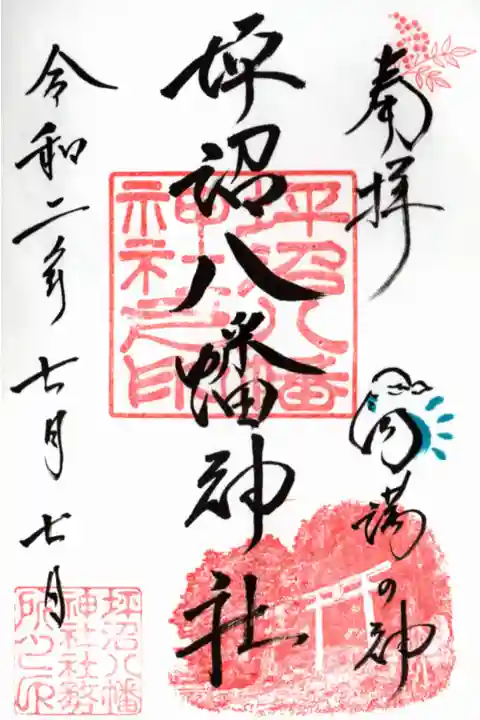 奉拝
円満の神
坪沼八幡神社
坪沼八幡
神社之印
令和二年七月七日
坪沼八幡
神社社務
所之印